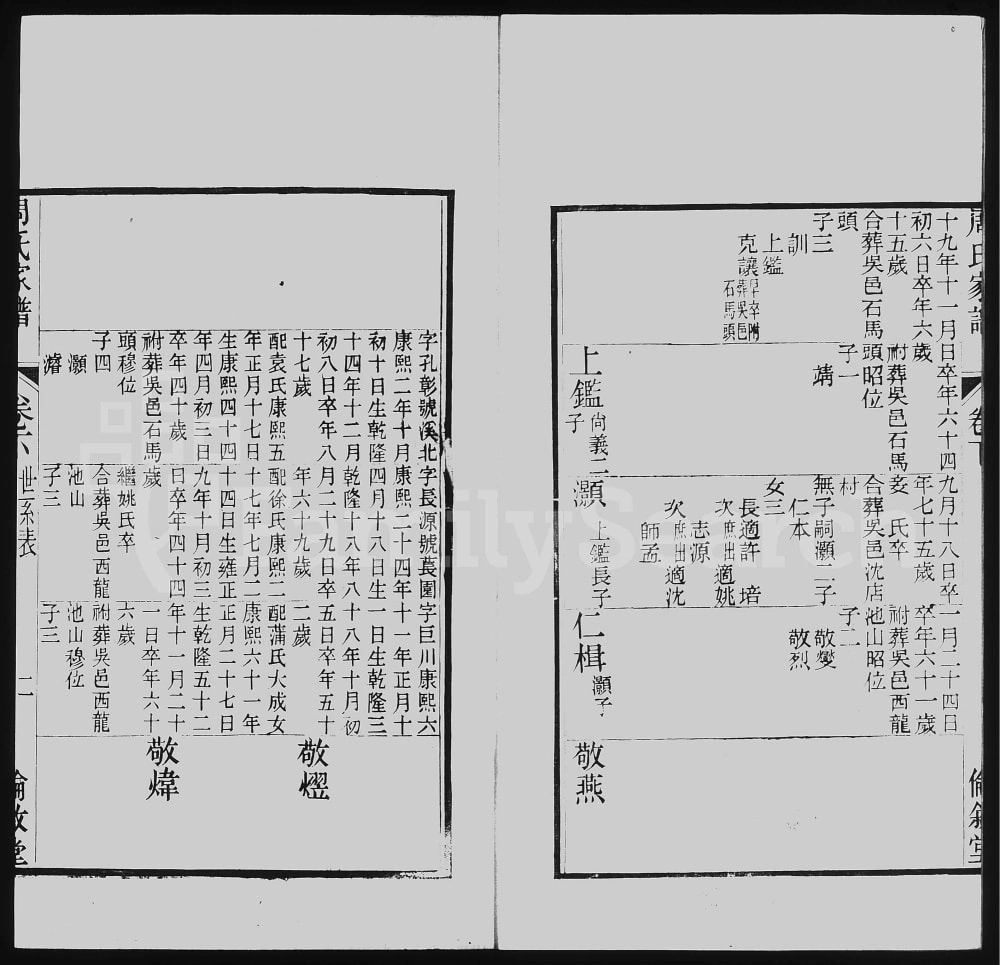 周氏家譜
卷六
倫敘堂
十九年十一月
初六日卒年六
十五歲
合葬吳邑石馬
頭
子三
訓
上鑑
克讓 早卒附葬吳邑石馬頭
日卒年六十四
歲
祔葬吳邑石馬
頭昭位
子一
靖
上鑑 尙義二子
九月十八日卒
年七十五歲
妾 氏卒
合葬吳邑沈店
村
無子嗣灝二子
仁本
女三
長適許 培
次庶出適姚
志源
次庶出適沈
師孟
灝 上鑑長子
一月二十四日
卒年六十一歲
祔葬吳邑西龍
池山昭位
子二
敬燮
敬烈
仁楫 灝子
敬燕
字孔彰號溪北
康熙二年十月
初十日生乾隆
十四年十二月
初八日卒年八
十七歲
配袁氏康熙五
年正月十七日
生康熙四十四
年四月初三日
卒年四十歲
祔葬吳邑石馬
頭穆位
子四
灝
濬
字長源號萇園
康熙二十四年
四月十八日生
乾隆十八年八
月二十九日卒
年六十九歲
配徐氏康熙二
十七年七月二
十四日生雍正
九年十月初三
日卒年四十四
歲
繼姚氏卒
合葬吳邑西龍
池山
子三
字巨川康熙六
十一年正月十
一日生乾隆三
十八年十月初
五日卒年五十
二歲
配蒲氏大成女
康熙六十一年
正月二十七日
生乾隆五十二
年十一月二十
一日卒年六十
六歲
祔葬吳邑西龍
池山穆位
子三
敬
敬煒
周氏家譜
卷六 世系表 二
倫敘堂
FamilySearch